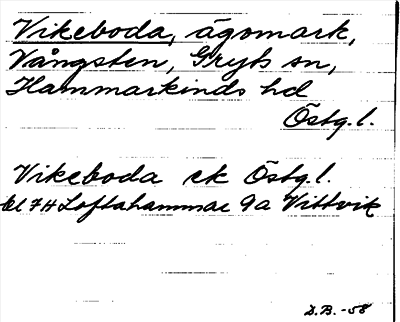 Vikeboda, ägomark,
Vångsten, Gryts sn,
Hammarkinds hd
Östg.l.
Vikeboda ek Östg.l.
bl 7H Loftahammar 9a Vittvik
D.B. -58